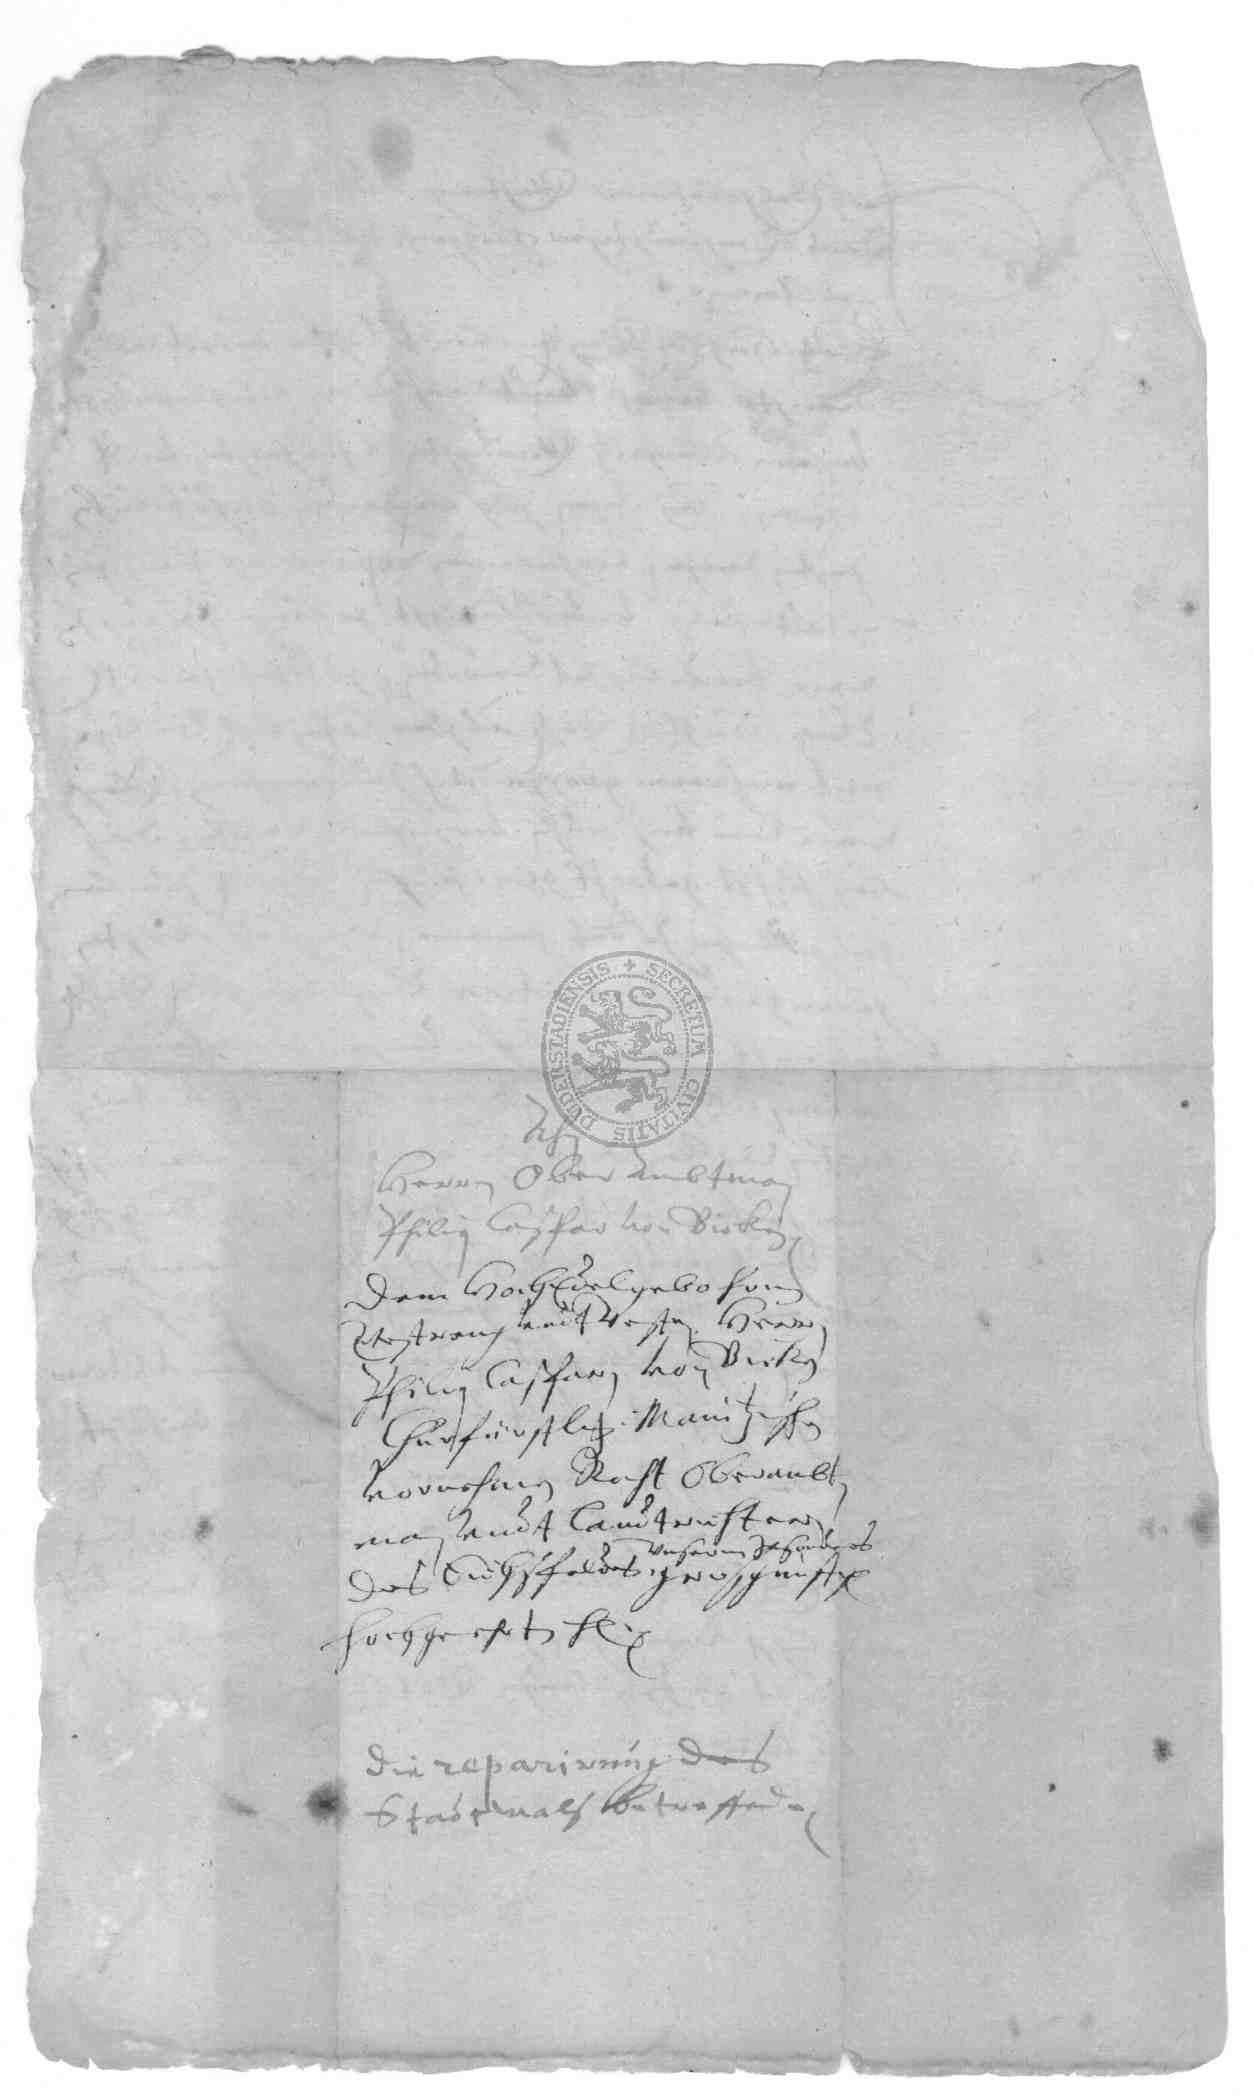 SECRETUM CIVITATIS DUDERSTADIENSIS
An
Herrn Ober Ambtman
Philip Caspar von Bicken
Dem HochEdelgebohren
Gestreng undt Vesten Herrn
Philip Casparn von Bicken
Churfürstlich Maintzischen
vornehmen Raht Oberambt
man undt Landtrichtern
des Eichsfeldes unserm
hochgeehrten H
Die reparirung des
Stadtwals betreffend